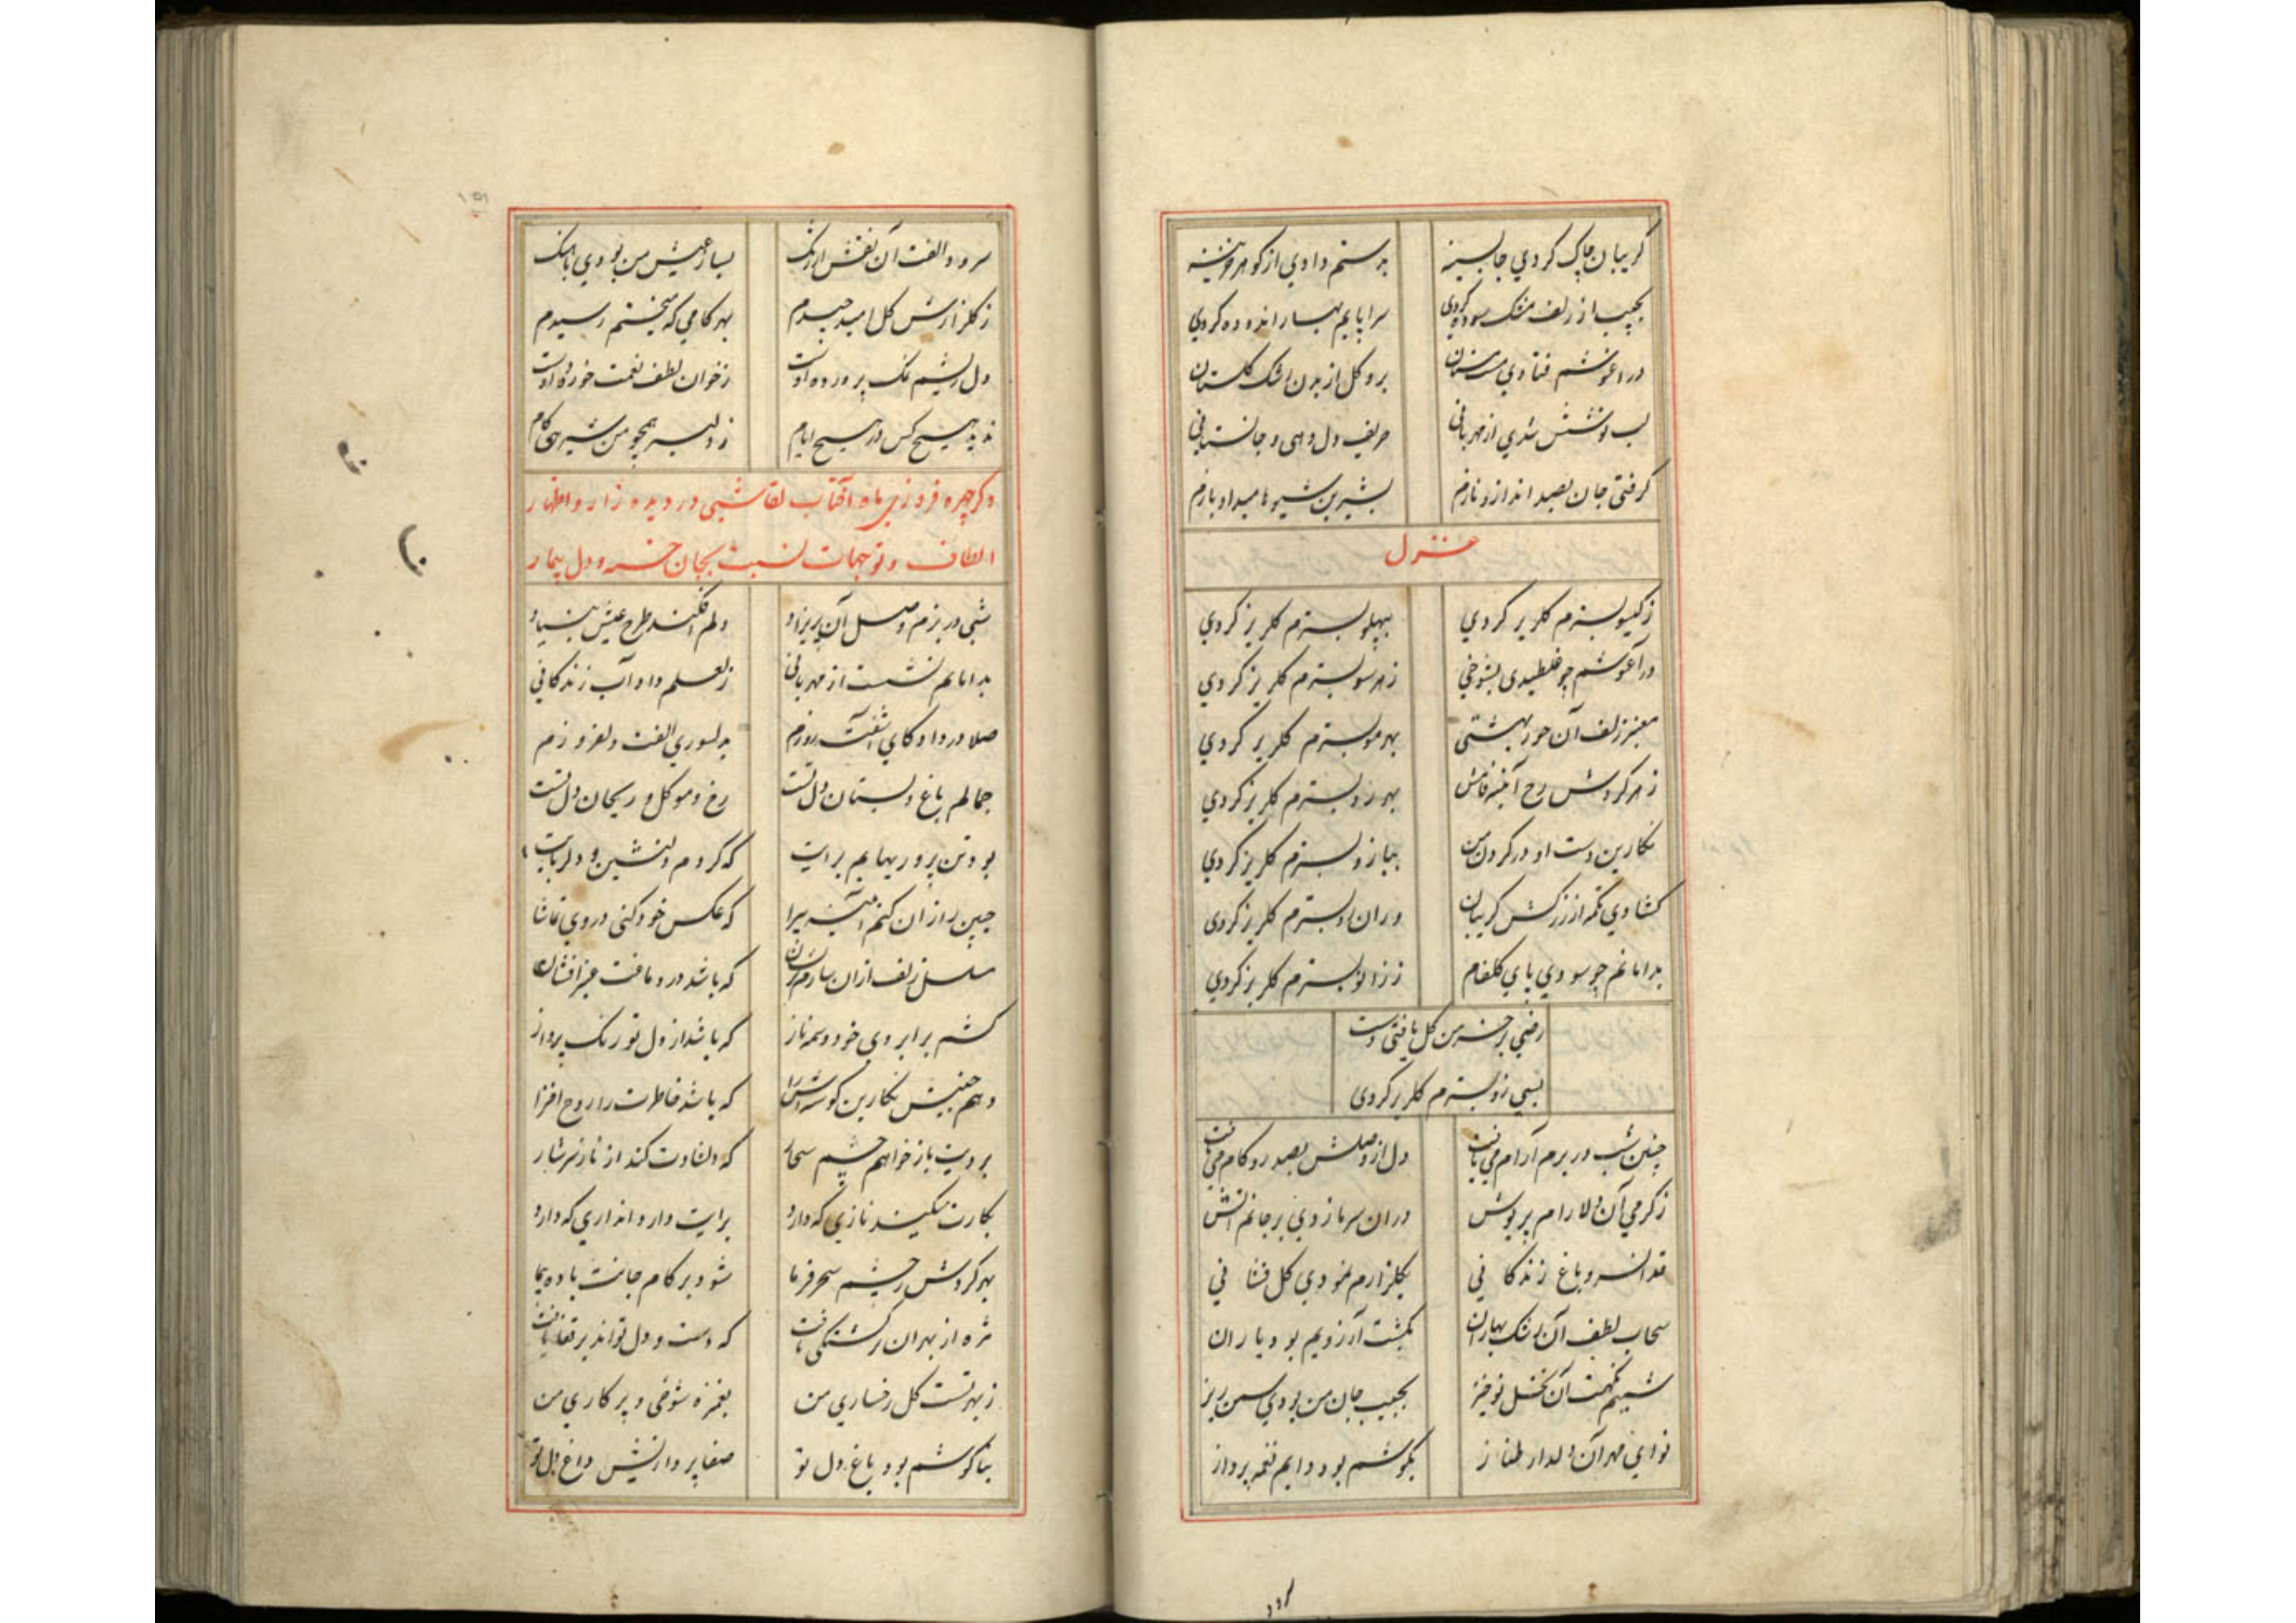 گریبان چاک کردی تا بسینه بدستم دادی از گوهر خزینه
بجیب از زلف مشک سوده کردی سراپایم بهار اندوده کردی
در آغوشم فتادی مست مستان برو گل از بدن رشک گلستان
لب نوشش شدی از مهربانی حریف دل دهی و جانستانی
گرفتی جان بصد انداز و نازم بشیرین شیوها میداد بازم
غزل
ز گیسو بسترم گلریز کردی بپهلو بسترم گلریز کردی
در آغوشم چو غلطیدی بشوخی ز هر سو بسترم گلریز کردی
معنبر زلف آن حور بهشتی بهر مو بسترم گلریز کردی
ز هر گردش رخ آئینه فامش بهر رو بسترم گلریز کردی
نگارین دست او در گردن من ببازو بسترم گلریز کردی
کشادی تکمه از زرکش گریبان وران و بسترم گلریز کردی
بدامانم چو سودی پای گلفام ز زانو بسترم گلریز کردی
رضی بر خرمن گل یافتی دست
بسی زو بسترم گلریز کردی
چنین شب در برم آرام می یافت دل از وصلش بصد رو کام می یافت
ز گرمی آن دلارام پریوش دران سرما زدی بر جانم آتش
قد آن سرو باغ زندگانی بگلزارم نمودی گل فشانی
سحاب لطف آن رشک بهاران بکشت آرزویم بود باران
شمیم نکهت آن نخل نوخیز بجیب جان من بودی سمن ریز
نوای مهر آن دلدار طناز بگوشم بود دایم نغمه پرداز
گردد
۱۵۱
سرود الفت آن نقش ارژنگ بساز عیش من بودی باهنگ
ز گلزارش گل امید چیدم بهر کامی که میجستم رسیدم
دل ریشم نمک پرورده اوست ز خوان لطف نعمت خورده اوست
ندیده هیچ کس در هیچ ایام ز دلبر همچو من شیرینی کام
ذکر چهره فروزی ماه آفتاب لقا شبی در دیده زار و اظهار
الطاف و توجهات نسبت بجان خسته و دل بیمار
شبی در بزم وصل آن پریزاد دلم افکند طرح عیش بنیاد
بدامانم نشست از مهربانی ز لعلم داد آب زندگانی
صلا در داد کای آشفته روزم بدلسوزی الفت دلفروزم
جمالم باغ و بستان دل تست رخ و مو گل و ریحان دل تست
بود تن پروریهایم برایت که گردم دلنشین و دلربایت
جبین را زان کنم آئینه سیرا که عکس خود کنی در وی تماشا
مسلسل زلف ازان سازم پریشان که باشد در دماغت عنبر افشان
کشم بر ابروی خود وسمه ناز که باشد از دل تو رنگ پرداز
دهم جنبش نگارین گوشه اش را که باشد خاطرت را روح افزا
برویت باز خواهم چشم سحار که دلشادت کند از ناز سرشار
بکارت میکند نازی که دارد برایت دارد اندازی که دارد
بهر گردش ز چشم سحر فرما شود بر کام جانت باده پیما
مژه از بهر ان برگشتگی یافت که دست و دل تواند بر قفا یافت
ز بهر تست گل رخساری من بغمزه شوخی و پرکاری من
بناگوشم بود باغ دل تو صفا پردازیش داغ دل تو